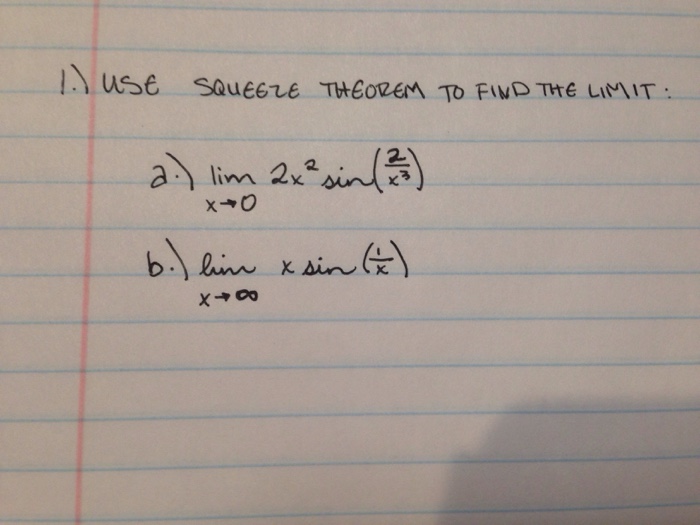 1.) USE SQUEEZE THEOREM TO FIND THE LIMIT:
a.) lim 2x² sin(2/x³)
x→0
b.) lim x sin(1/x)
x→∞